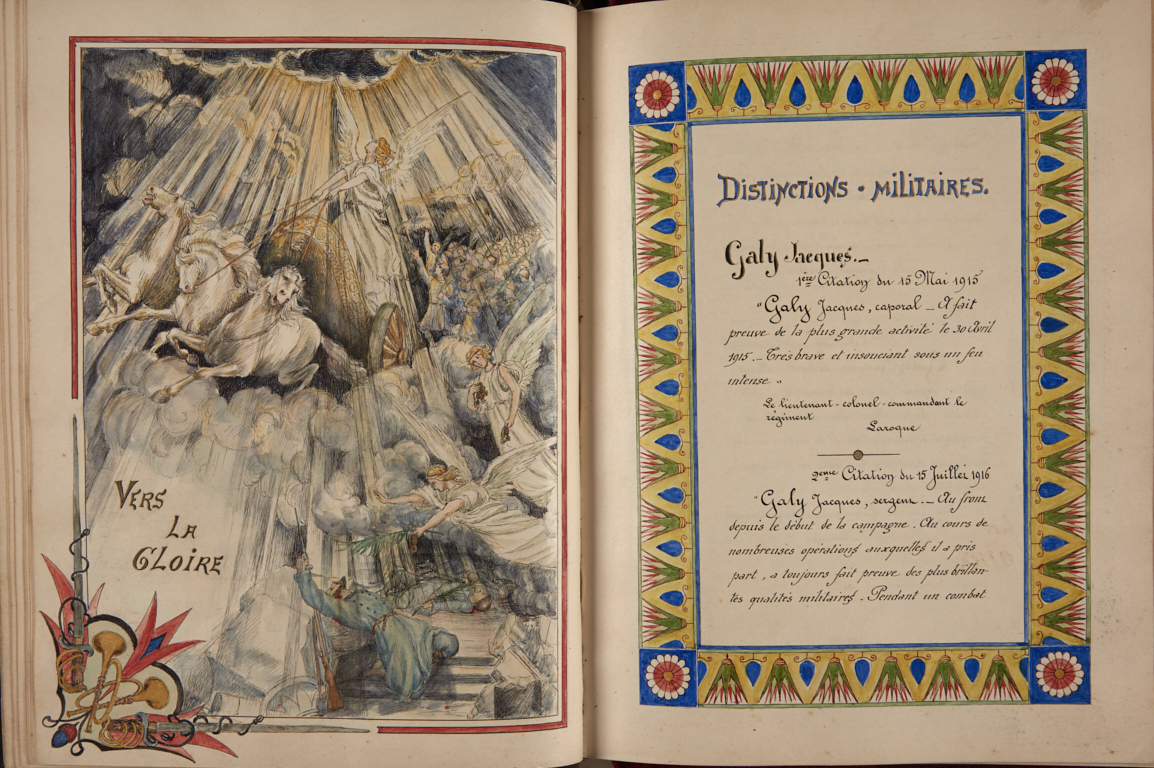 VERS
LA
GLOIRE
DISTINCTIONS • MILITAIRES.
Galy Jacques._
1ère Citation du 15 Mai 1915
"Galy Jacques, caporal _ A fait
preuve de la plus grande activité le 30 Avril
1915._ Très brave et insouciant sous un feu
intense "
Le lieutenant-colonel-commandant le
régiment
Laroque
2ème Citation du 15 Juillet 1916
"Galy Jacques, sergent._ Au front
depuis le début de la campagne. Au cours de
nombreuses opérations auxquelles il a pris
part, a toujours fait preuve des plus brillan-
tes qualités militaires. Pendant un combat